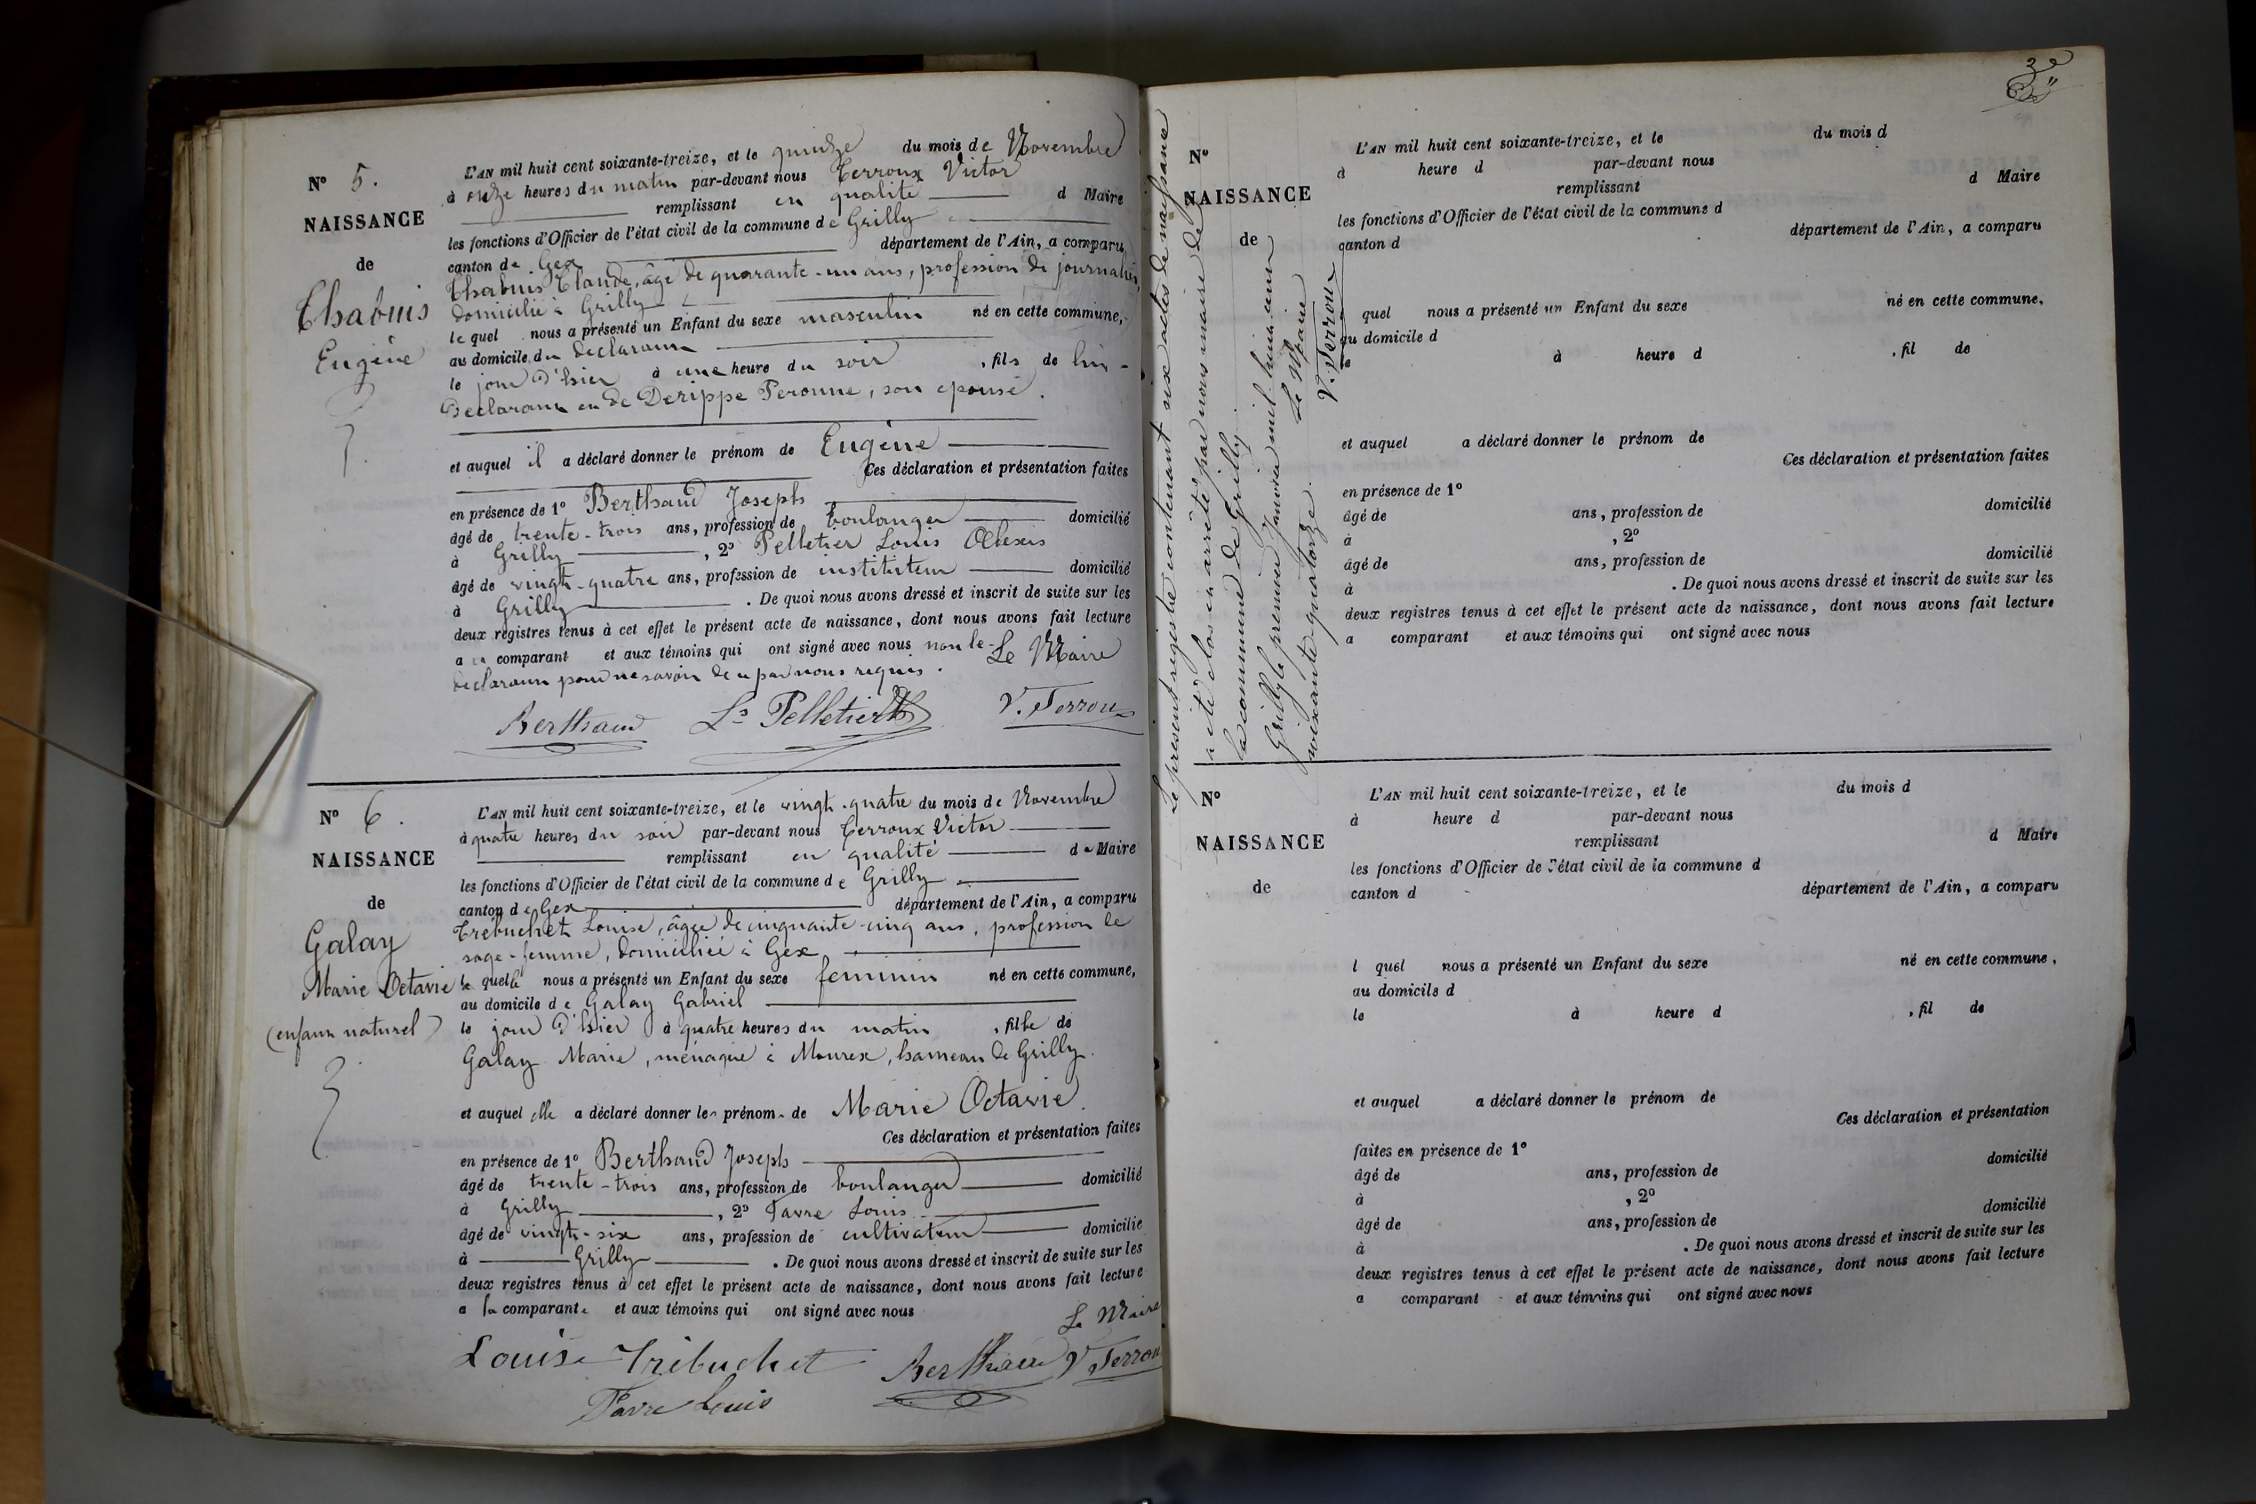 N° 5.
NAISSANCE
de
Chabuis
Eugène
L'AN mil huit cent soixante-treize, et le quinze du mois de Novembre
à onze heures du matin par-devant nous Terroux Victor
remplissant en qualité d Maire
les fonctions d'Officier de l'état civil de la commune de Grilly
canton de Gex département de l'Ain, a comparu
Chabuis Claude, âgé de quarante-un ans, profession de journalier,
domicilié à Grilly
le quel nous a présenté un Enfant du sexe masculin né en cette commune,
au domicile du déclarant
le jour d'hier à une heure du soir, fils de lui-
déclarant et de Derippe Peronne, son épouse.
et auquel il a déclaré donner le prénom de Eugène
Ces déclaration et présentation faites
en présence de 1° Berthaud Joseph
âgé de trente-trois ans, profession de boulanger domicilié
à Grilly, 2° Pelletier Louis Alexis
âgé de vingt-quatre ans, profession de instituteur domicilié
à Grilly. De quoi nous avons dressé et inscrit de suite sur les
deux registres tenus à cet effet le présent acte de naissance, dont nous avons fait lecture
au comparant et aux témoins qui ont signé avec nous non le
déclarant pour ne savoir de ce par nous requis. Le Maire
Berthaud Ls Pelletier V. Terroux
N° 6.
NAISSANCE
de
Galay
Marie Octavie
(enfant naturel)
L'AN mil huit cent soixante-treize, et le vingt-quatre du mois de Novembre
à quatre heures du soir par-devant nous Terroux Victor
remplissant en qualité de Maire
les fonctions d'Officier de l'état civil de la commune de Grilly
canton de Gex département de l'Ain, a comparu
Trébuchet Louise, âgée de cinquante-cinq ans, profession de
sage-femme, domiciliée à Gex
la quelle nous a présenté un Enfant du sexe feminin né en cette commune,
au domicile de Galay Gabriel
le jour d'hier à quatre heures du matin, fille de
Galay Marie, ménagère à Mourex, hameau de Grilly.
et auquel elle a déclaré donner les prénoms de Marie Octavie.
Ces déclaration et présentation faites
en présence de 1° Berthaud Joseph
âgé de trente-trois ans, profession de boulanger domicilié
à Grilly, 2° Favre Louis
âgé de vingt-six ans, profession de cultivateur domicilié
à Grilly. De quoi nous avons dressé et inscrit de suite sur les
deux registres tenus à cet effet le présent acte de naissance, dont nous avons fait lecture
a la comparante et aux témoins qui ont signé avec nous
Le Maire
Louise Trébuchet Berthaud V. Terroux
Favre Louis
Le présent registre contenant six actes de naissance
a été clos et arrêté par nous maire de
la commune de Grilly.
Grilly le premier Janvier mil huit cent
soixante-quatorze.
Le Maire
V. Terroux
3e
N°
NAISSANCE
de
L'AN mil huit cent soixante-treize, et le du mois d
à heure d par-devant nous
remplissant d Maire
les fonctions d'Officier de l'état civil de la commune d
canton d département de l'Ain, a comparu
quel nous a présenté un Enfant du sexe né en cette commune,
au domicile d
le à heure d , fil de
et auquel a déclaré donner le prénom de
Ces déclaration et présentation faites
en présence de 1°
âgé de ans, profession de domicilié
à , 2°
âgé de ans, profession de domicilié
à . De quoi nous avons dressé et inscrit de suite sur les
deux registres tenus à cet effet le présent acte de naissance, dont nous avons fait lecture
a comparant et aux témoins qui ont signé avec nous
N°
NAISSANCE
de
L'AN mil huit cent soixante-treize, et le du mois d
à heure d par-devant nous
remplissant d Maire
les fonctions d'Officier de l'état civil de la commune d
canton d département de l'Ain, a comparu
l quel nous a présenté un Enfant du sexe né en cette commune,
au domicile d
le à heure d , fil de
et auquel a déclaré donner le prénom de
Ces déclaration et présentation
faites en présence de 1°
âgé de ans, profession de domicilié
à , 2°
âgé de ans, profession de domicilié
à . De quoi nous avons dressé et inscrit de suite sur les
deux registres tenus à cet effet le présent acte de naissance, dont nous avons fait lecture
a comparant et aux témoins qui ont signé avec nous